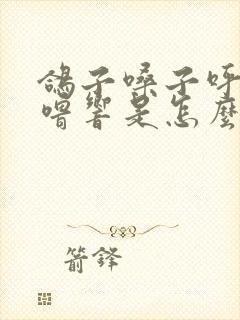 鴿子嗓子呼
喟響是怎麼
箭鋒